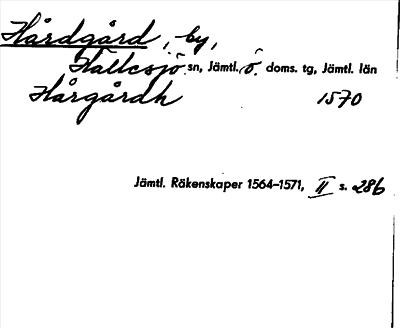 Hårdgård, by,
Hällesjö sn, Jämtl. ö. doms. tg, Jämtl. län
Hårgårdh 1570
Jämtl. Räkenskaper 1564–1571, II s. 286